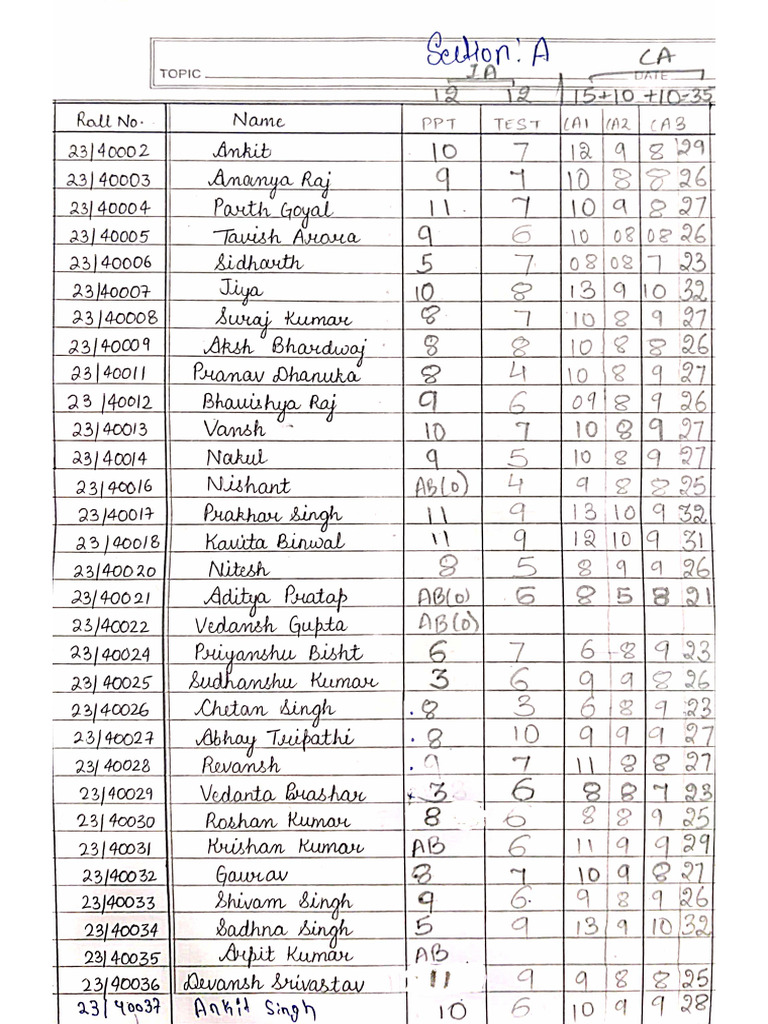 Section: A
IA CA
TOPIC DATE
12 12 15+10+10=35
Roll No. Name PPT TEST CA1 CA2 CA3
23/40002 Ankit 10 7 12 9 8 29
23/40003 Ananya Raj 9 7 10 8 8 26
23/40004 Parth Goyal 11 7 10 9 8 27
23/40005 Tavish Arora 9 6 10 08 08 26
23/40006 Sidharth 5 7 08 08 7 23
23/40007 Jiya 10 8 13 9 10 32
23/40008 Suraj Kumar 8 7 10 8 9 27
23/40009 Aksh Bhardwaj 8 8 10 8 8 26
23/40011 Pranav Dhanuka 8 4 10 8 9 27
23/40012 Bhavishya Raj 9 6 09 8 9 26
23/40013 Vansh 10 7 10 8 9 27
23/40014 Nakul 9 5 10 8 9 27
23/40016 Nishant AB(0) 4 9 8 8 25
23/40017 Prakhar Singh 11 9 13 10 9 32
23/40018 Kavita Binwal 11 9 12 10 9 31
23/40020 Nitesh 8 5 8 9 9 26
23/40021 Aditya Pratap AB(0) 6 8 5 8 21
23/40022 Vedansh Gupta AB(0)
23/40024 Priyanshu Bisht 6 7 6 8 9 23
23/40025 Sudhanshu Kumar 3 6 9 9 8 26
23/40026 Chetan Singh 8 3 6 8 9 23
23/40027 Abhay Tripathi 8 10 9 9 9 27
23/40028 Revansh 9 7 11 8 8 27
23/40029 Vedanta Prashar 3 6 8 8 7 23
23/40030 Roshan Kumar 8 6 8 8 9 25
23/40031 Krishan Kumar AB 6 11 9 9 29
23/40032 Gaurav 8 7 10 9 8 27
23/40033 Shivam Singh 9 6 9 8 9 26
23/40034 Sadhna Singh 5 9 13 9 10 32
23/40035 Arpit Kumar AB
23/40036 Devansh Srivastav 11 9 9 8 8 25
23/40037 Ankit Singh 10 6 10 9 9 28